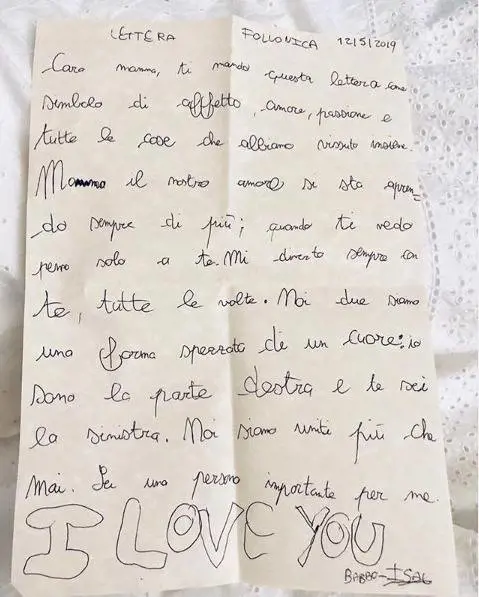 LETTERA FOLLONICA 12/5/2019
Cara mamma, ti mando questa lettera come
simbolo di affetto, amore, passione e
tutte le cose che abbiamo vissuto insieme.
Mamma il nostro amore si sta apren=
do sempre di più; quando ti vedo
penso solo a te. Mi diverto sempre con
te, tutte le volte. Noi due siamo
una forma spezzata di un cuore: io
sono la parte destra e te sei
la sinistra. Noi siamo uniti più che
mai. Sei una persona importante per me.
I LOVE YOU
BABBO-